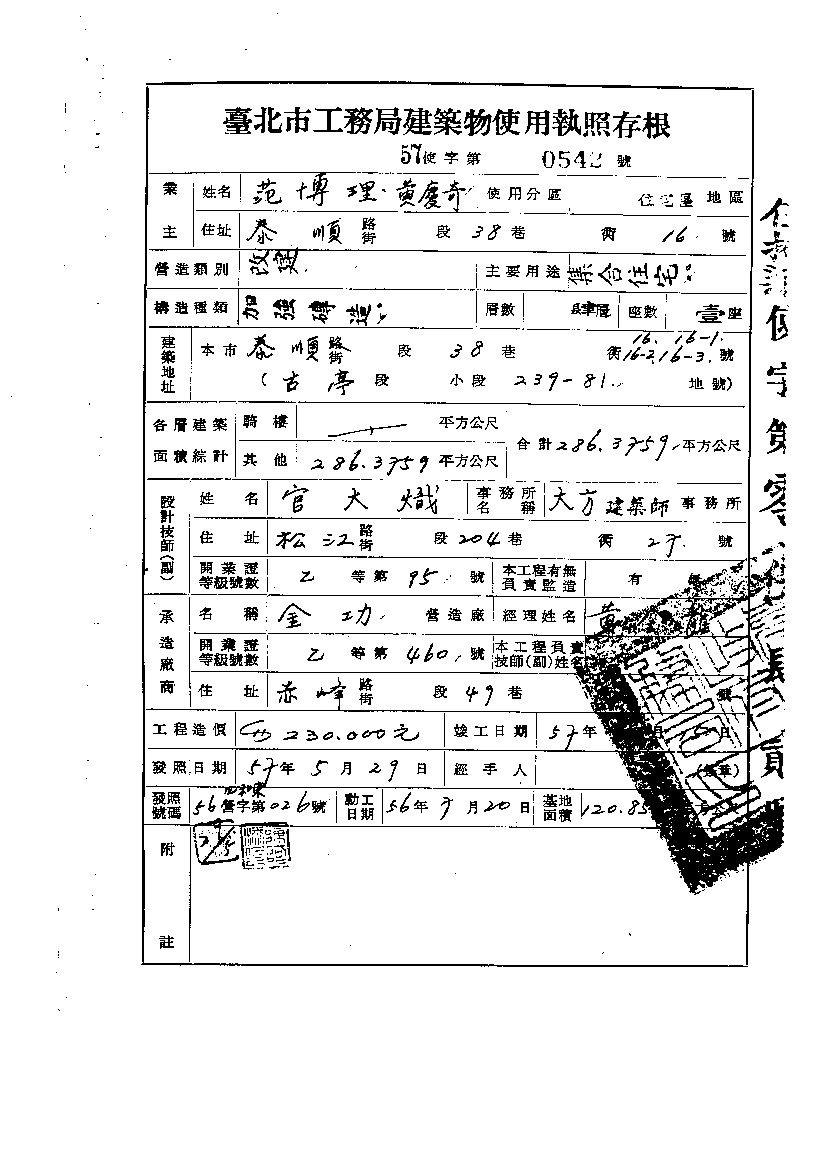 臺北市工務局建築物使用執照存根
57使字第 0542 號
業主 姓名 范博理·黃慶奇 使用分區 住宅區 地區
住址 泰順 路街 段 38 巷 衖 16 號
營造類別 改建 主要用途 集合住宅
構造種類 加強磚造 層數 層 座數 壹座
建築地址 本市 泰順 路街 段 38 巷 衖 16. 16-1. 16-2. 16-3. 號
(古亭段 小段 239-81 地號)
各層建築面積綜計 騎樓 平方公尺 合計 286.3759 平方公尺
其他 286.3759 平方公尺
設計技師(副) 姓名 官大熾 事務所名稱 大方建築師事務所
住址 松江 路街 段 204 巷 衖 號
開業證等級號數 乙 等第 95 號 本工程有無負責監造 有
承造廠商 名稱 金功 營造廠 經理姓名 黃
開業證等級號數 乙 等第 460 號 本工程負責技師(副)姓名
住址 赤峰 路街 段 49 巷 號
工程造價 230.000元 竣工日期 57年 月 5 日
發照日期 57年 5 月 29 日 經手人 (簽章)
發照號碼 56 營字第026號 動工日期 56年 月 20 日 基地面積 120.85
附註